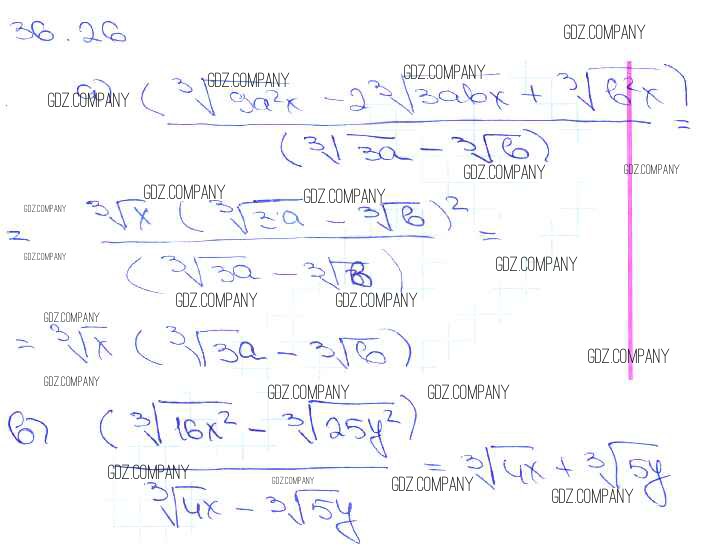 36.26
GDZ.COMPANY
GDZ.COMPANY GDZ.COMPANY
GDZ.COMPANY
а) (∛9a²x - 2∛3abx + ∛b²x) / (∛3a - ∛b) =
GDZ.COMPANY GDZ.COMPANY
GDZ.COMPANY GDZ.COMPANY
GDZ.COMPANY
= ∛x (∛3a - ∛b)² / (∛3a - ∛b) =
GDZ.COMPANY GDZ.COMPANY
GDZ.COMPANY GDZ.COMPANY
GDZ.COMPANY
= ∛x (∛3a - ∛b)
GDZ.COMPANY
GDZ.COMPANY GDZ.COMPANY GDZ.COMPANY
в) (∛16x² - ∛25y²) / ∛4x - ∛5y = ∛4x + ∛5y
GDZ.COMPANY GDZ.COMPANY GDZ.COMPANY GDZ.COMPANY